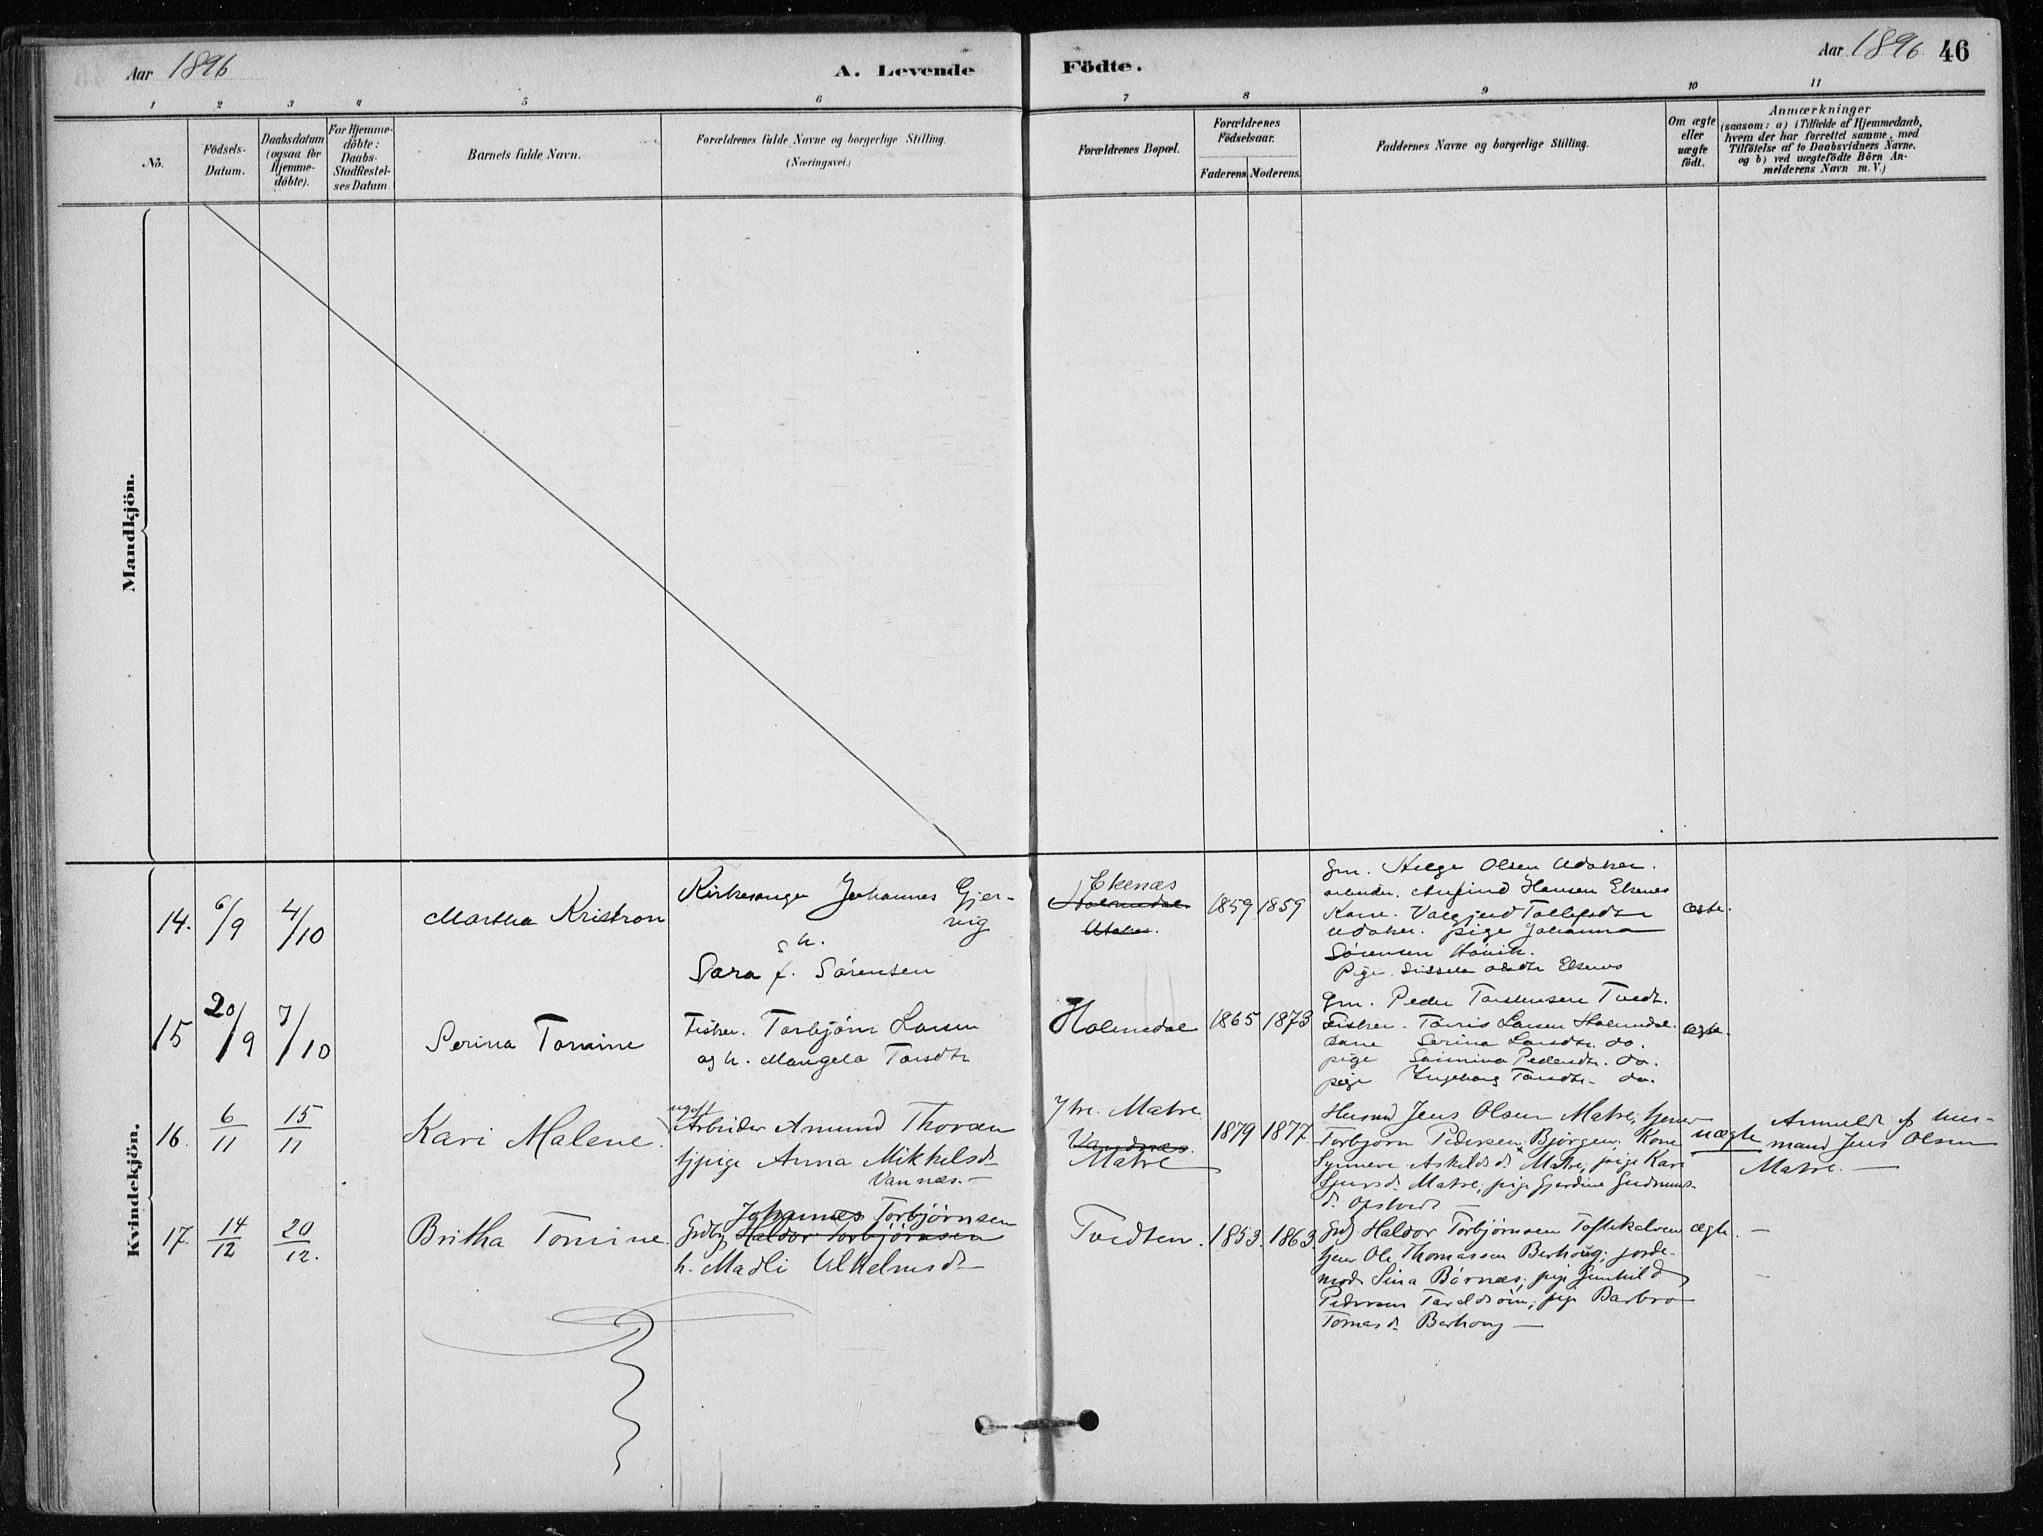 Aar 1896
A. Levende Födte.
Aar 1896 46
1 2 3 4 5 6 7 8 9 10 11
No.
Födsels-
Datum.
Daabsdatum
(ogsaa for
Hjemme-
döbte).
For Hjemme-
döbte:
Daabs-
Stadfæstel-
ses Datum.
Barnets fulde Navn.
Forældrenes fulde Navne og borgerlige Stilling.
(Næringsvei.)
Forældrenes Bopæl.
Forældrenes
Födselsaar.
Faderens. Moderens.
Faddernes Navne og borgerlige Stilling.
Om ægte
eller
uægte
født.
Anmærkninger
(saasom: a) i Tilfælde af Hjemmedaab,
hvem der har forrettet samme, med
Tilföielse af to Daabsvidners Navne.
og b) ved uægtefödte Börn An-
melderens Navn m.V.)
Mandkjön.
Kvindekjön.
14. 6/9 4/10
Martha
Kirkesanger Johannes Gjer-
vig
h.
Sara f. Sörensen
Ekenæs
Holmedal
Utaker.
1859 1859
Gm. Helge Olsen Utaker.
arbeider. Hansen Ekenes
Kone.
Utaker. pige Johanna
Sørensen
Pige.
ægte.
15 20/9 7/10
Serina Tomine
Fisker. Torbjörn Larsen
og h. Mangela Torsdtr
Holmedal
1865 1873
Gm. Peder Torstensen Tvedt.
Fisker. Tørris Larsen Holmedal.
Kone Serina Larsdtr. do.
pige Pedersdtr. do.
pige Ingeborg do.
ægte.
16. 6/11 15/11
Kari Malene.
ugift
Arbeider Amund
tjpige Anna Mikkelsd.
Vannes. —
Ytre Matre
Vandnæs.
Matre
1879 1877
Husmd Jens Olsen Matre; tjener
Torbjørn Pedersen Bjørgen; Kone
Synneve Askildsd. Matre; pige Kari
Sjursd. Matre; pige Gjerdine Gudmunds-
d. Opsved —
uægte
Anmeldt af hus-
mand Jens Olsen
Matre. —
17. 14/12 20/12.
Britha Tomine.
Johannes Torbjørnsen
Grdbr Haldor Torbjørnsen
h. Madli Vilhelmsd.
Tvedten.
1853. 1863.
Grdbr Haldor Torbjørnsen Toftekalven
tjener Ole Thomassen Berhoug; jorde-
moder Sina Børnæs; pige Gunhild
Pedersen Taraldsøin; pige Barbro
Tomasd. Berhoug —
ægte. —